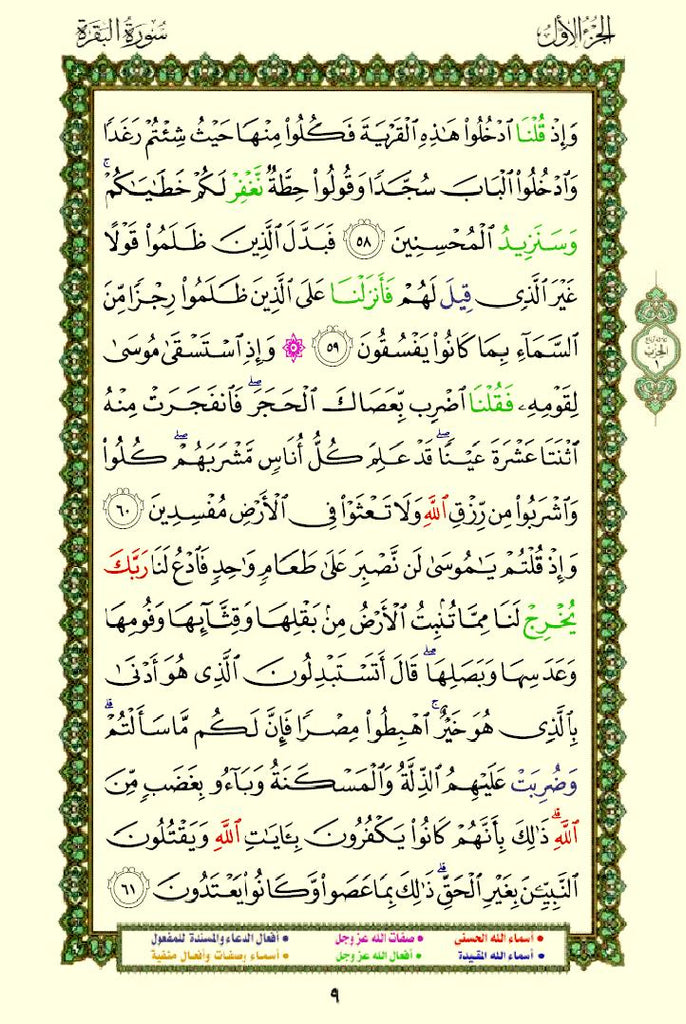 الجزء الأول
سورة البقرة
وَإِذْ قُلْنَا ٱدْخُلُوا۟ هَـٰذِهِ ٱلْقَرْيَةَ فَكُلُوا۟ مِنْهَا حَيْثُ شِئْتُمْ رَغَدًا
وَٱدْخُلُوا۟ ٱلْبَابَ سُجَّدًا وَقُولُوا۟ حِطَّةٌ نَّغْفِرْ لَكُمْ خَطَـٰيَـٰكُمْ ۚ
وَسَنَزِيدُ ٱلْمُحْسِنِينَ ٥٨ فَبَدَّلَ ٱلَّذِينَ ظَلَمُوا۟ قَوْلًا
غَيْرَ ٱلَّذِى قِيلَ لَهُمْ فَأَنزَلْنَا عَلَى ٱلَّذِينَ ظَلَمُوا۟ رِجْزًا مِّنَ
ٱلسَّمَآءِ بِمَا كَانُوا۟ يَفْسُقُونَ ٥٩ ۞ وَإِذِ ٱسْتَسْقَىٰ مُوسَىٰ
لِقَوْمِهِۦ فَقُلْنَا ٱضْرِب بِّعَصَاكَ ٱلْحَجَرَ ۖ فَٱنفَجَرَتْ مِنْهُ
ٱثْنَتَا عَشْرَةَ عَيْنًا ۖ قَدْ عَلِمَ كُلُّ أُنَاسٍ مَّشْرَبَهُمْ ۖ كُلُوا۟
وَٱشْرَبُوا۟ مِن رِّزْقِ ٱللَّهِ وَلَا تَعْثَوْا۟ فِى ٱلْأَرْضِ مُفْسِدِينَ ٦٠
وَإِذْ قُلْتُمْ يَـٰمُوسَىٰ لَن نَّصْبِرَ عَلَىٰ طَعَامٍ وَٰحِدٍ فَٱدْعُ لَنَا رَبَّكَ
يُخْرِجْ لَنَا مِمَّا تُنۢبِتُ ٱلْأَرْضُ مِنۢ بَقْلِهَا وَقِثَّآئِهَا وَفُومِهَا
وَعَدَسِهَا وَبَصَلِهَا ۖ قَالَ أَتَسْتَبْدِلُونَ ٱلَّذِى هُوَ أَدْنَىٰ
بِٱلَّذِى هُوَ خَيْرٌ ۚ ٱهْبِطُوا۟ مِصْرًا فَإِنَّ لَكُم مَّا سَأَلْتُمْ ۗ
وَضُرِبَتْ عَلَيْهِمُ ٱلذِّلَّةُ وَٱلْمَسْكَنَةُ وَبَآءُو بِغَضَبٍ مِّنَ
ٱللَّهِ ۗ ذَٰلِكَ بِأَنَّهُمْ كَانُوا۟ يَكْفُرُونَ بِـَٔايَـٰتِ ٱللَّهِ وَيَقْتُلُونَ
ٱلنَّبِيِّـۧنَ بِغَيْرِ ٱلْحَقِّ ۗ ذَٰلِكَ بِمَا عَصَوا۟ وَّكَانُوا۟ يَعْتَدُونَ ٦١
الحزب
١
• أسماء الله الحسنى • صفات الله عز وجل • أفعال الدعاء والمسندة للمفعول
• أسماء الله المقيدة • أفعال الله عز وجل • أسماء وصفات وأفعال منفية
٩